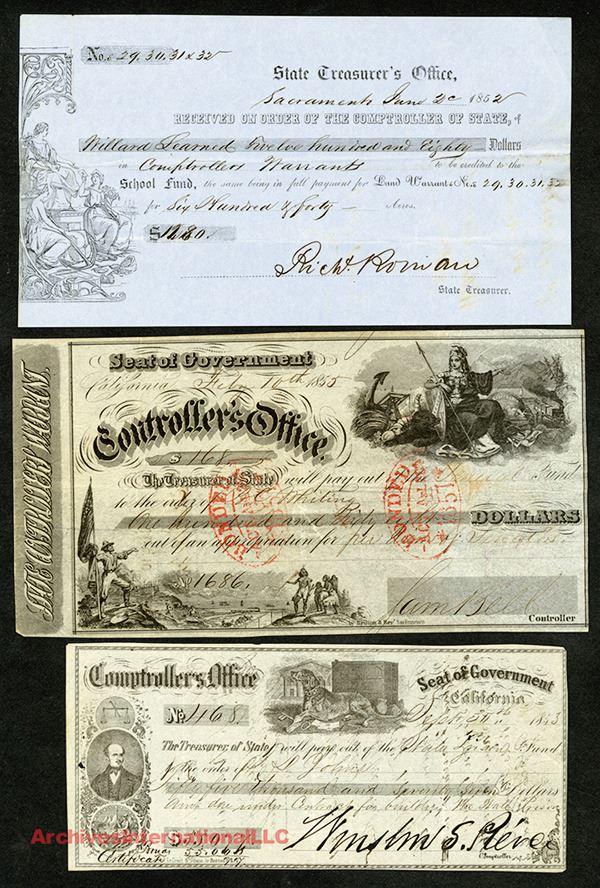 No. 29. 30. 31 & 32
State Treasurer's Office,
Sacramento June 2d 1852
RECEIVED ON ORDER OF THE COMPTROLLER OF STATE, of
Willard Learned Twelve hundred and Eighty Dollars
in Comptrollers Warrants to be credited to the
School Fund, the same being in full payment for Land Warrants Nos 29. 30. 31. 32
for Six Hundred & forty — Acres.
$1280.
Richd. Roman
State Treasurer.
STATE CONTROLLER'S WARRANT.
Seat of Government
California Feby 16th 1855
Controller's Office.
$ 168
The Treasurer of State will pay out of the General Fund
to the order of Whiting
One hundred and Sixty Eight DOLLARS
out of an appropriation for per
FUNDED
FUNDED
No 1686.
Sam Bell
Controller
Comptroller's Office
Seat of Government
California
No. 468.
Sept. 1853
The Treasurer of State will pay out of the State Prison Fund
to the order of
five thousand and seventy seven Dollars
due under Contract for building The State Prison
Winslow S. Pierce
Comptroller
Certificate
ArchivesInternationalLLC